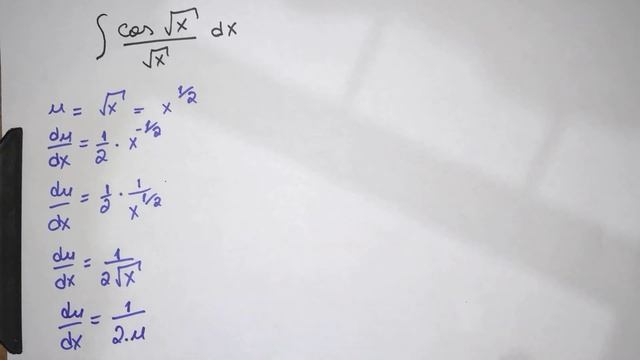 ∫ cos √x / √x dx
u = √x = x^1/2
du/dx = 1/2 · x^-1/2
du/dx = 1/2 · 1/x^1/2
du/dx = 1/2√x
du/dx = 1/2.u